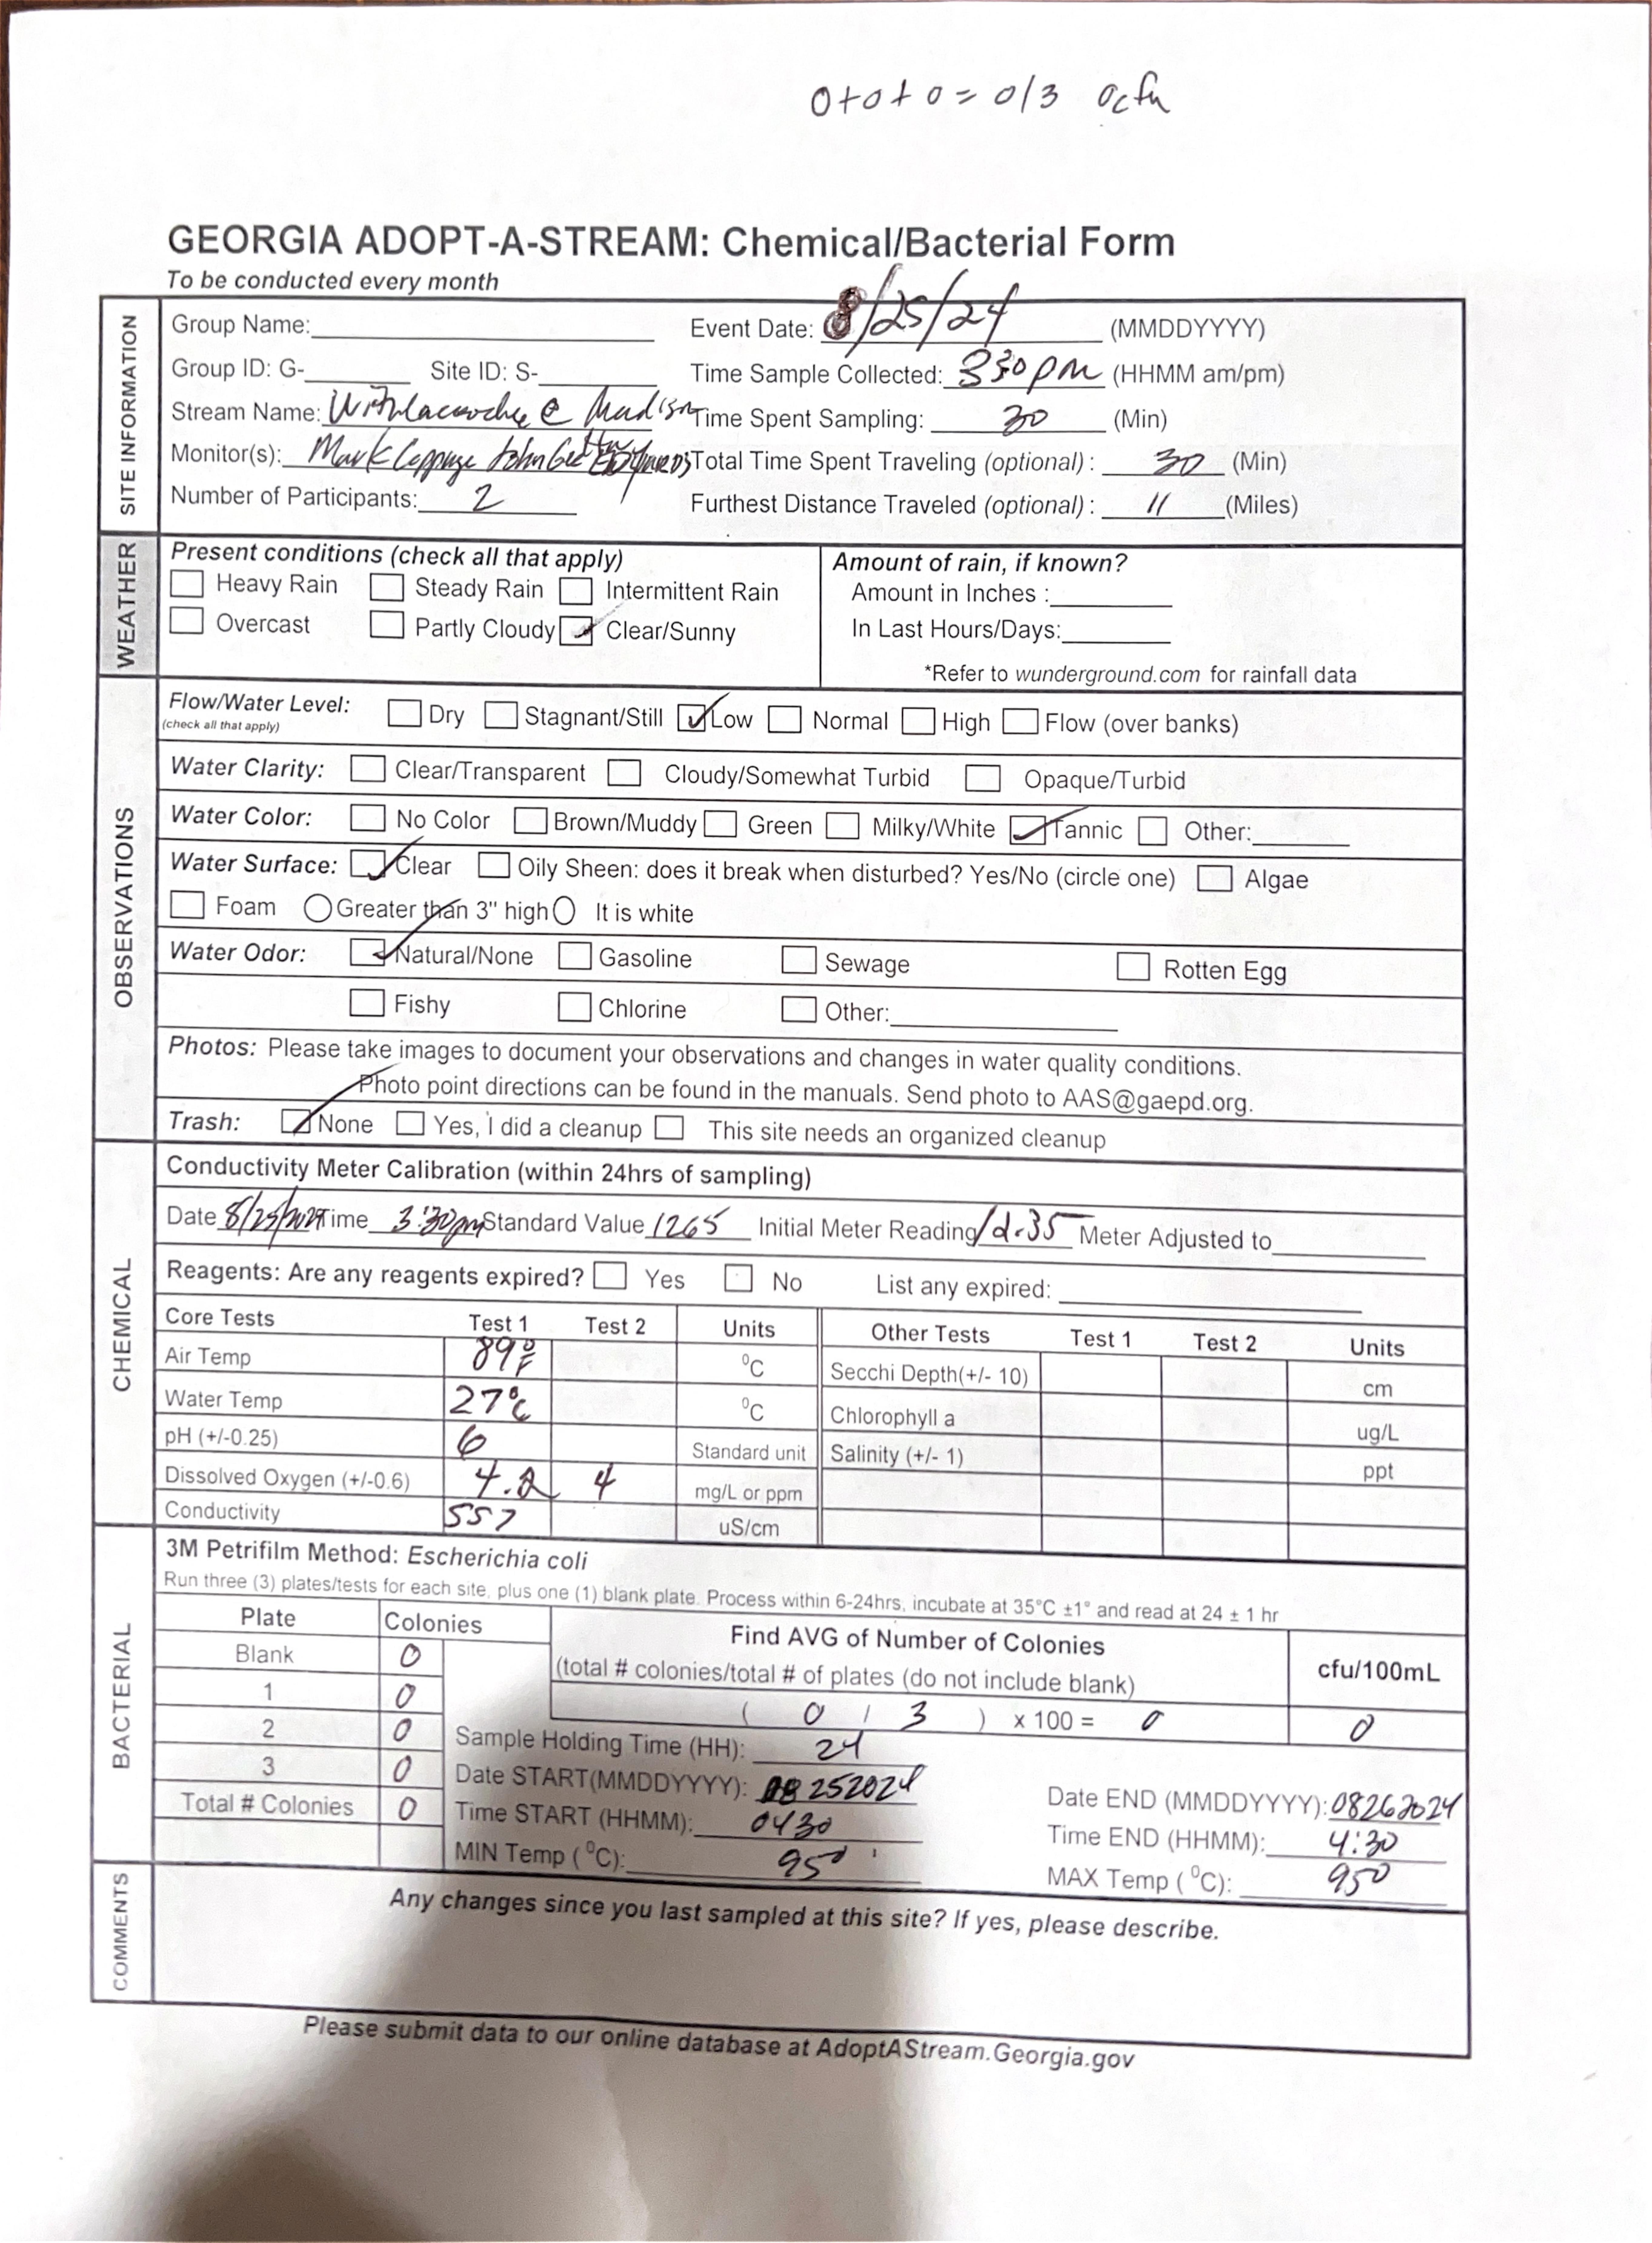 0+0+0=0/3 0cfu
GEORGIA ADOPT-A-STREAM: Chemical/Bacterial Form
To be conducted every month
SITE INFORMATION
Group Name: Event Date: 8/25/24 (MMDDYYYY)
Group ID: G- Site ID: S- Time Sample Collected: 330pm (HHMM am/pm)
Stream Name: @ Madison Time Spent Sampling: 30 (Min)
Monitor(s): Mark John Total Time Spent Traveling (optional) : 30 (Min)
Number of Participants: 2 Furthest Distance Traveled (optional) : 11 (Miles)
WEATHER
Present conditions (check all that apply) Amount of rain, if known?
Heavy Rain Steady Rain Intermittent Rain Amount in Inches :
Overcast Partly Cloudy Clear/Sunny In Last Hours/Days:
*Refer to wunderground.com for rainfall data
OBSERVATIONS
Flow/Water Level: Dry Stagnant/Still Low Normal High Flow (over banks)
(check all that apply)
Water Clarity: Clear/Transparent Cloudy/Somewhat Turbid Opaque/Turbid
Water Color: No Color Brown/Muddy Green Milky/White Tannic Other:
Water Surface: Clear Oily Sheen: does it break when disturbed? Yes/No (circle one) Algae
Foam Greater than 3" high It is white
Water Odor: Natural/None Gasoline Sewage Rotten Egg
Fishy Chlorine Other:
Photos: Please take images to document your observations and changes in water quality conditions.
Photo point directions can be found in the manuals. Send photo to AAS@gaepd.org.
Trash: None Yes, I did a cleanup This site needs an organized cleanup
CHEMICAL
Conductivity Meter Calibration (within 24hrs of sampling)
Date 8/25/2024 Time 3:30pm Standard Value 1265 Initial Meter Reading Meter Adjusted to
Reagents: Are any reagents expired? Yes No List any expired:
Core Tests Test 1 Test 2 Units Other Tests Test 1 Test 2 Units
Air Temp 89°F °C Secchi Depth(+/- 10) cm
Water Temp 27°C °C Chlorophyll a ug/L
pH (+/-0.25) 6 Standard unit Salinity (+/- 1) ppt
Dissolved Oxygen (+/-0.6) 4.2 4 mg/L or ppm
Conductivity 557 uS/cm
BACTERIAL
3M Petrifilm Method: Escherichia coli
Run three (3) plates/tests for each site, plus one (1) blank plate. Process within 6-24hrs, incubate at 35°C ±1° and read at 24 ± 1 hr
Plate Colonies Find AVG of Number of Colonies cfu/100mL
Blank 0 (total # colonies/total # of plates (do not include blank)
1 0 ( 0 / 3 ) x 100 = 0 0
2 0 Sample Holding Time (HH): 24
3 0 Date START(MMDDYYYY): 08252024 Date END (MMDDYYYY): 08262024
Total # Colonies 0 Time START (HHMM): 0430 Time END (HHMM): 4:30
MIN Temp (°C): 95° MAX Temp (°C): 95°
COMMENTS
Any changes since you last sampled at this site? If yes, please describe.
Please submit data to our online database at AdoptAStream.Georgia.gov